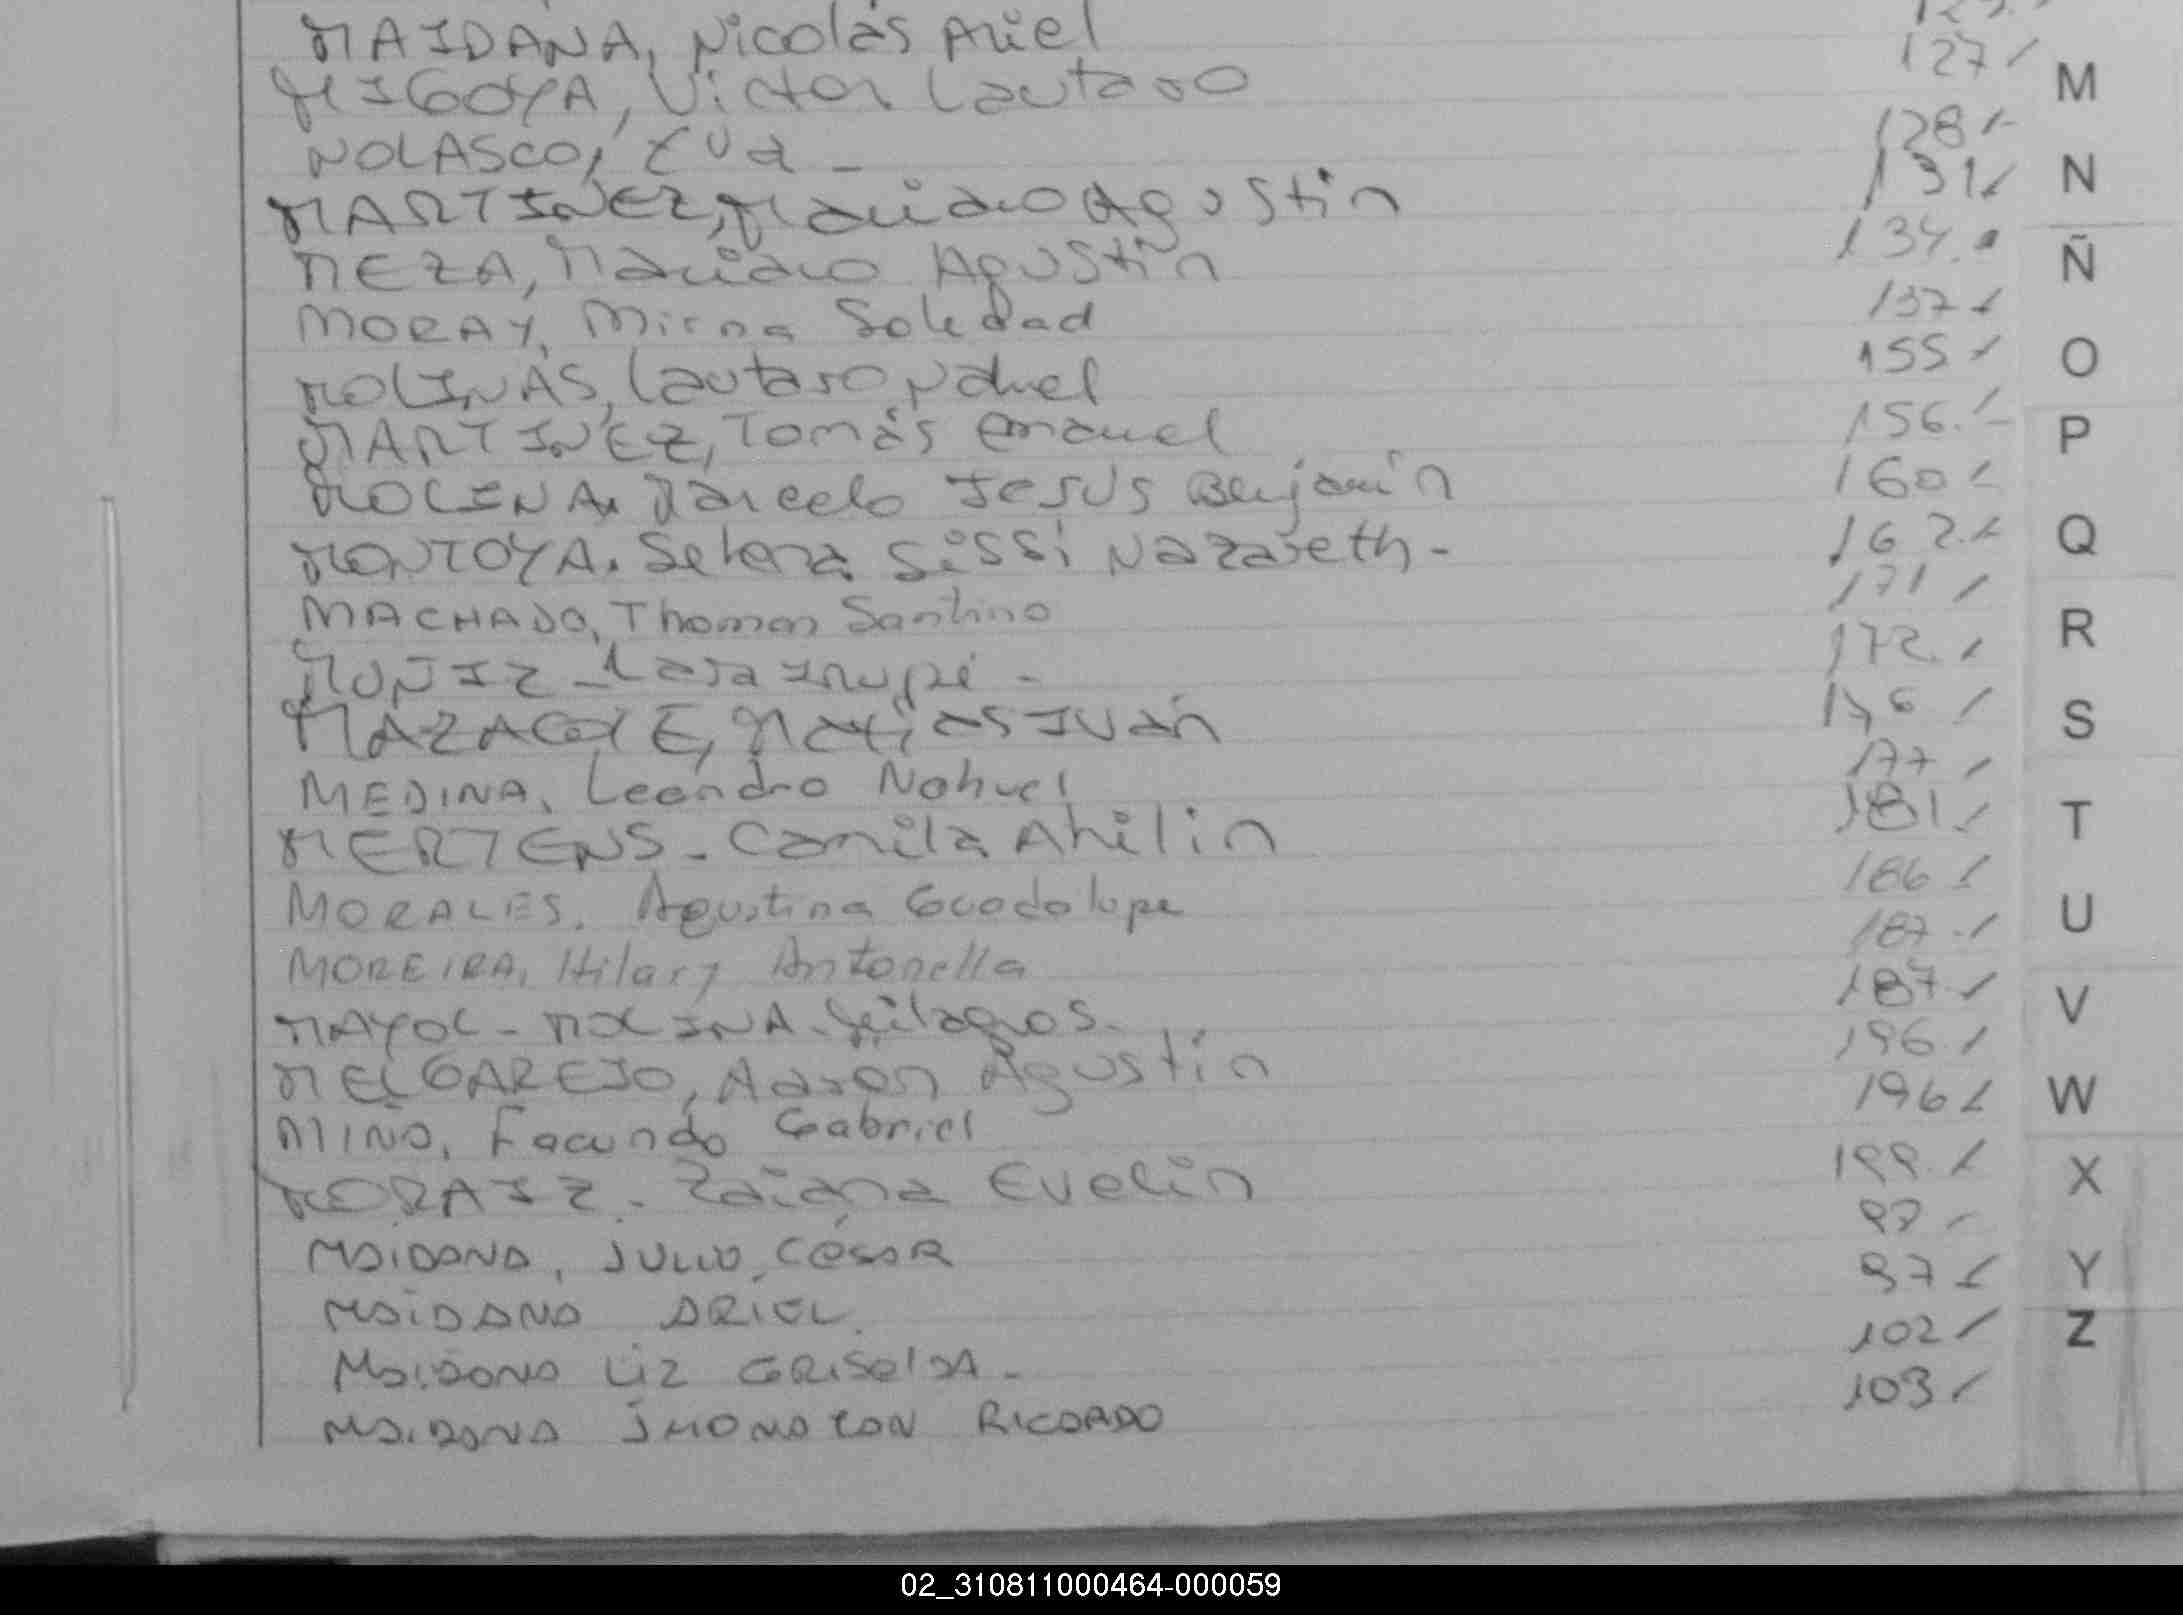 MAIDANA, Nicolás Ariel
MIGOYA, Victor Lautaro 127
NOLASCO, Eva - 128
MARTINEZ, Mariano Agustin 131
MEZA, Mariano Agustin 134
MORAY, Mirna Soledad 137
MOLINAS, Lautaro Nahuel 155
MARTINEZ, Tomás Emanuel 156
MOLINA, Marcelo Jesus Benjamin 160
MONTOYA. Selena Sissi Nazareth - 162
MACHADO, Thomas Santino 171
MUÑIZ - Lara Irupé - 172
Matias Iván 176
MEDINA, Leandro Nahuel 177
MERTENS - Camila Ahilin 181
MORALES, Agustina Guadalupe 186
MOREIRA, Hilary Antonella 187
MAYOL - MOLINA - Milagros. 187
MELGAREJO, Aaron Agustin 196
MIÑO, Facundo Gabriel 196
MORAIZ - Zaiana Evelin 199
MAIDANA, JULIO CÉSAR 97
MAIDANA ARIEL 97
MAIDANA LIZ GRISELDA - 102
MAIDANA JHONATAN RICARDO 103
M
N
Ñ
O
P
Q
R
S
T
U
V
W
X
Y
Z
02_310811000464-000059